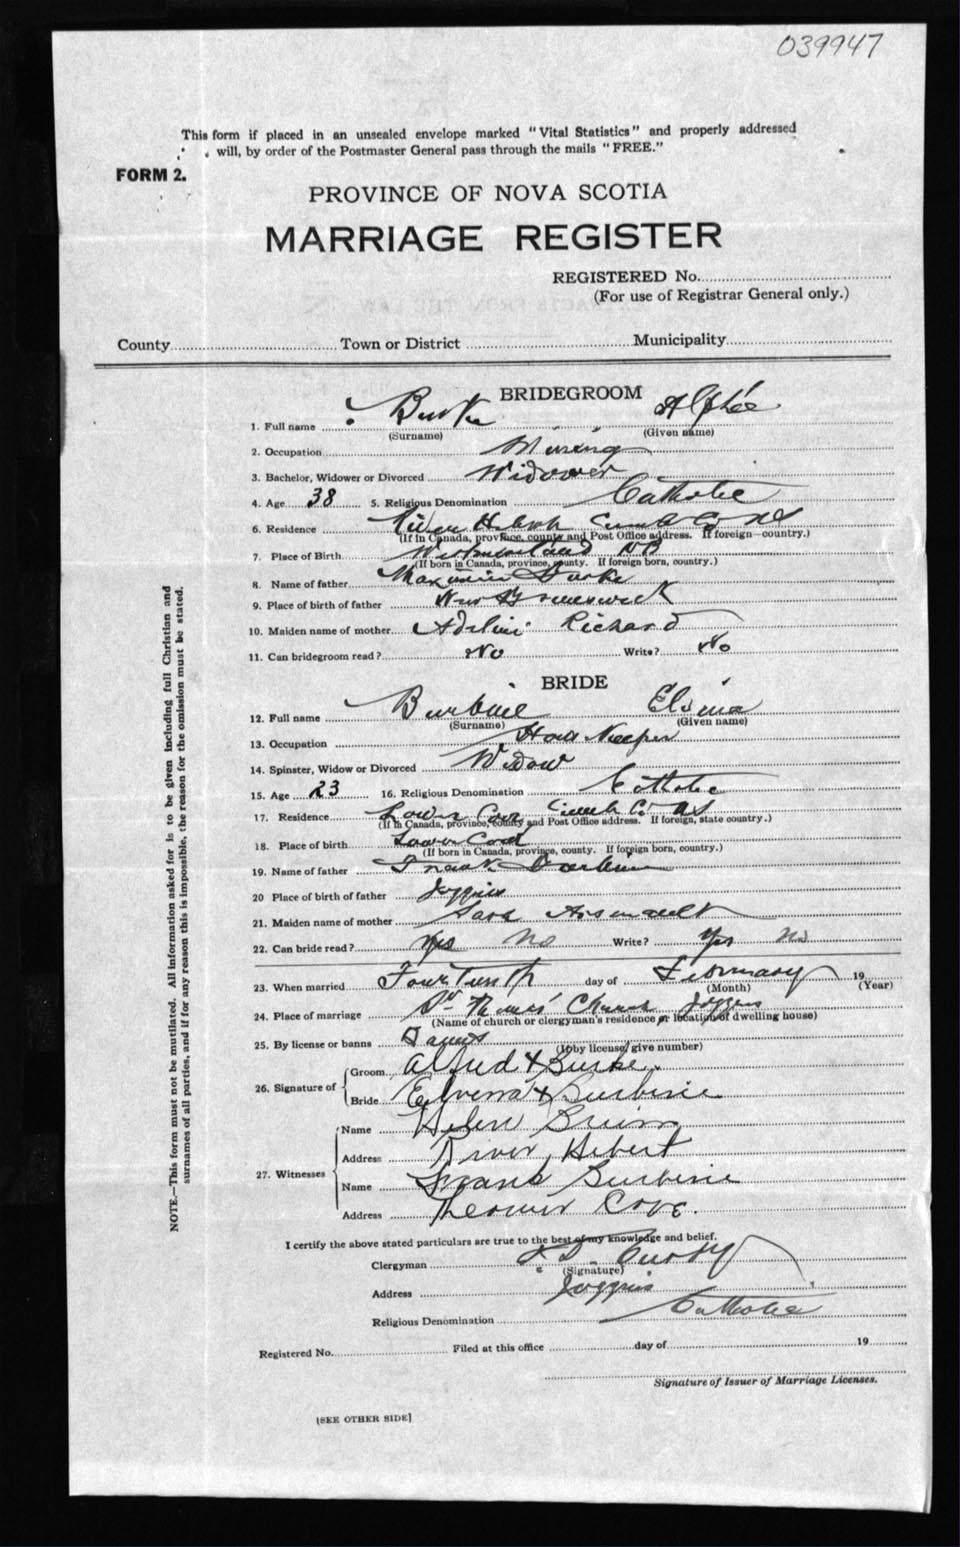 039947
This form if placed in an unsealed envelope marked "Vital Statistics" and properly addressed
will, by order of the Postmaster General pass through the mails "FREE."
FORM 2.
PROVINCE OF NOVA SCOTIA
MARRIAGE REGISTER
REGISTERED No.
(For use of Registrar General only.)
County Town or District Municipality
BRIDEGROOM
1. Full name Burke Alphée
(Surname) (Given name)
2. Occupation Mining
3. Bachelor, Widower or Divorced Widower
4. Age 38 5. Religious Denomination Catholic
6. Residence River Hebert Cumb Co NS
(If in Canada, province, county and Post Office address. If foreign—country.)
7. Place of Birth Westmorland NB
(If born in Canada, province, county. If foreign born, country.)
8. Name of father Burke
9. Place of birth of father New Brunswick
10. Maiden name of mother Adeline Richard
11. Can bridegroom read? No Write? No
BRIDE
12. Full name Burbine
(Surname) (Given name)
13. Occupation House Keeper
14. Spinster, Widow or Divorced Widow
15. Age 23 16. Religious Denomination Catholic
17. Residence Lower Cove Cumb Co NS
(If in Canada, province, county and Post Office address. If foreign, state country.)
18. Place of birth Lower Cove
(If born in Canada, province, county. If foreign born, country.)
19. Name of father Frank Burbine
20 Place of birth of father Joggins
21. Maiden name of mother Sara Arsenault
22. Can bride read? Yes No Write? Yes No
23. When married Fourteenth day of February 19
(Month) (Year)
24. Place of marriage St Thomas' Church Joggins
(Name of church or clergyman's residence or location of dwelling house)
25. By license or banns Banns
(If by license, give number)
26. Signature of
Groom Alfred X Burke
Bride Elvena X Burbine
27. Witnesses
Name Helen
Address River Hebert
Name Frank Burbine
Address Lower Cove.
I certify the above stated particulars are true to the best of my knowledge and belief.
Clergyman
(Signature)
Address Joggins
Religious Denomination Catholic
Registered No. Filed at this office day of 19
Signature of Issuer of Marriage Licenses.
[SEE OTHER SIDE]
NOTE.—This form must not be mutilated. All information asked for is to be given including full Christian and
surnames of all parties, and if for any reason this is impossible, the reason for the omission must be stated.